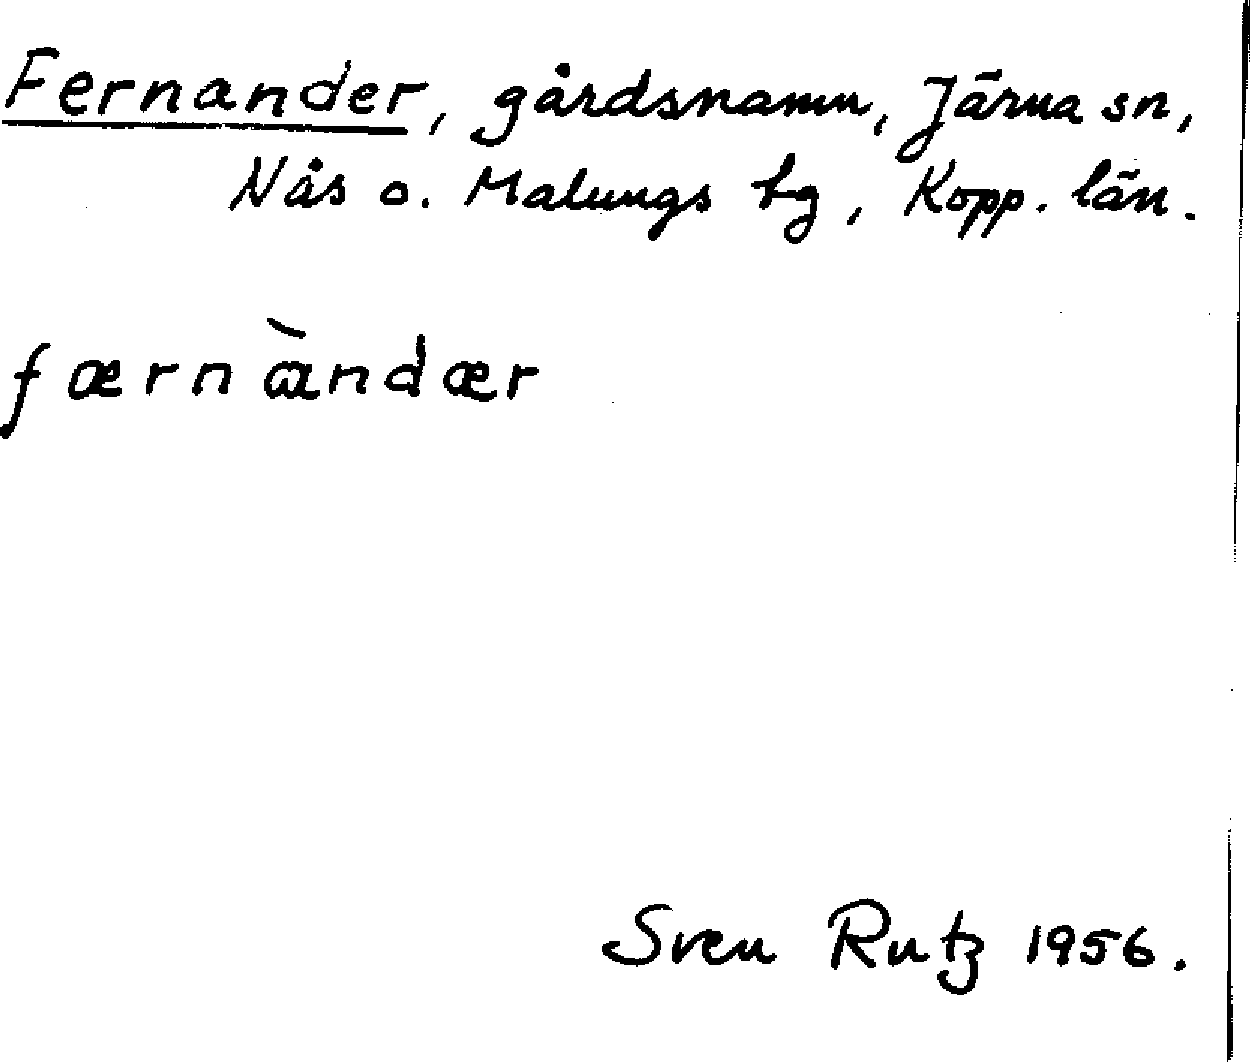 Fernander, gårdsnamn, Järna sn,
Nås o. Malungs tg, Kopp. län.
færnàndær
Sven Rutz 1956.